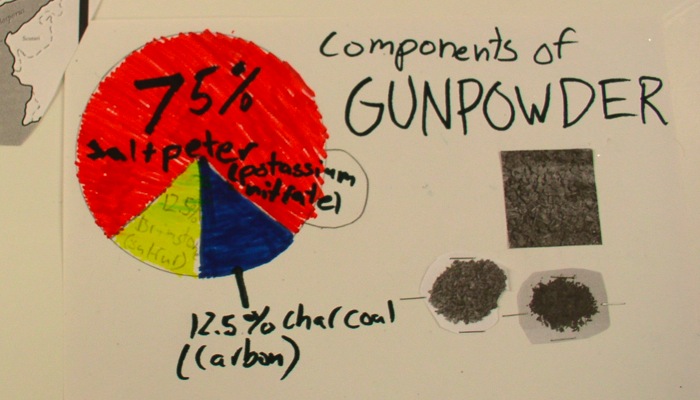 Components of
GUNPOWDER
75%
saltpeter
(potassium
nitrate)
12.5%
Brimstone
(sulfur)
12.5% charcoal
(carbon)